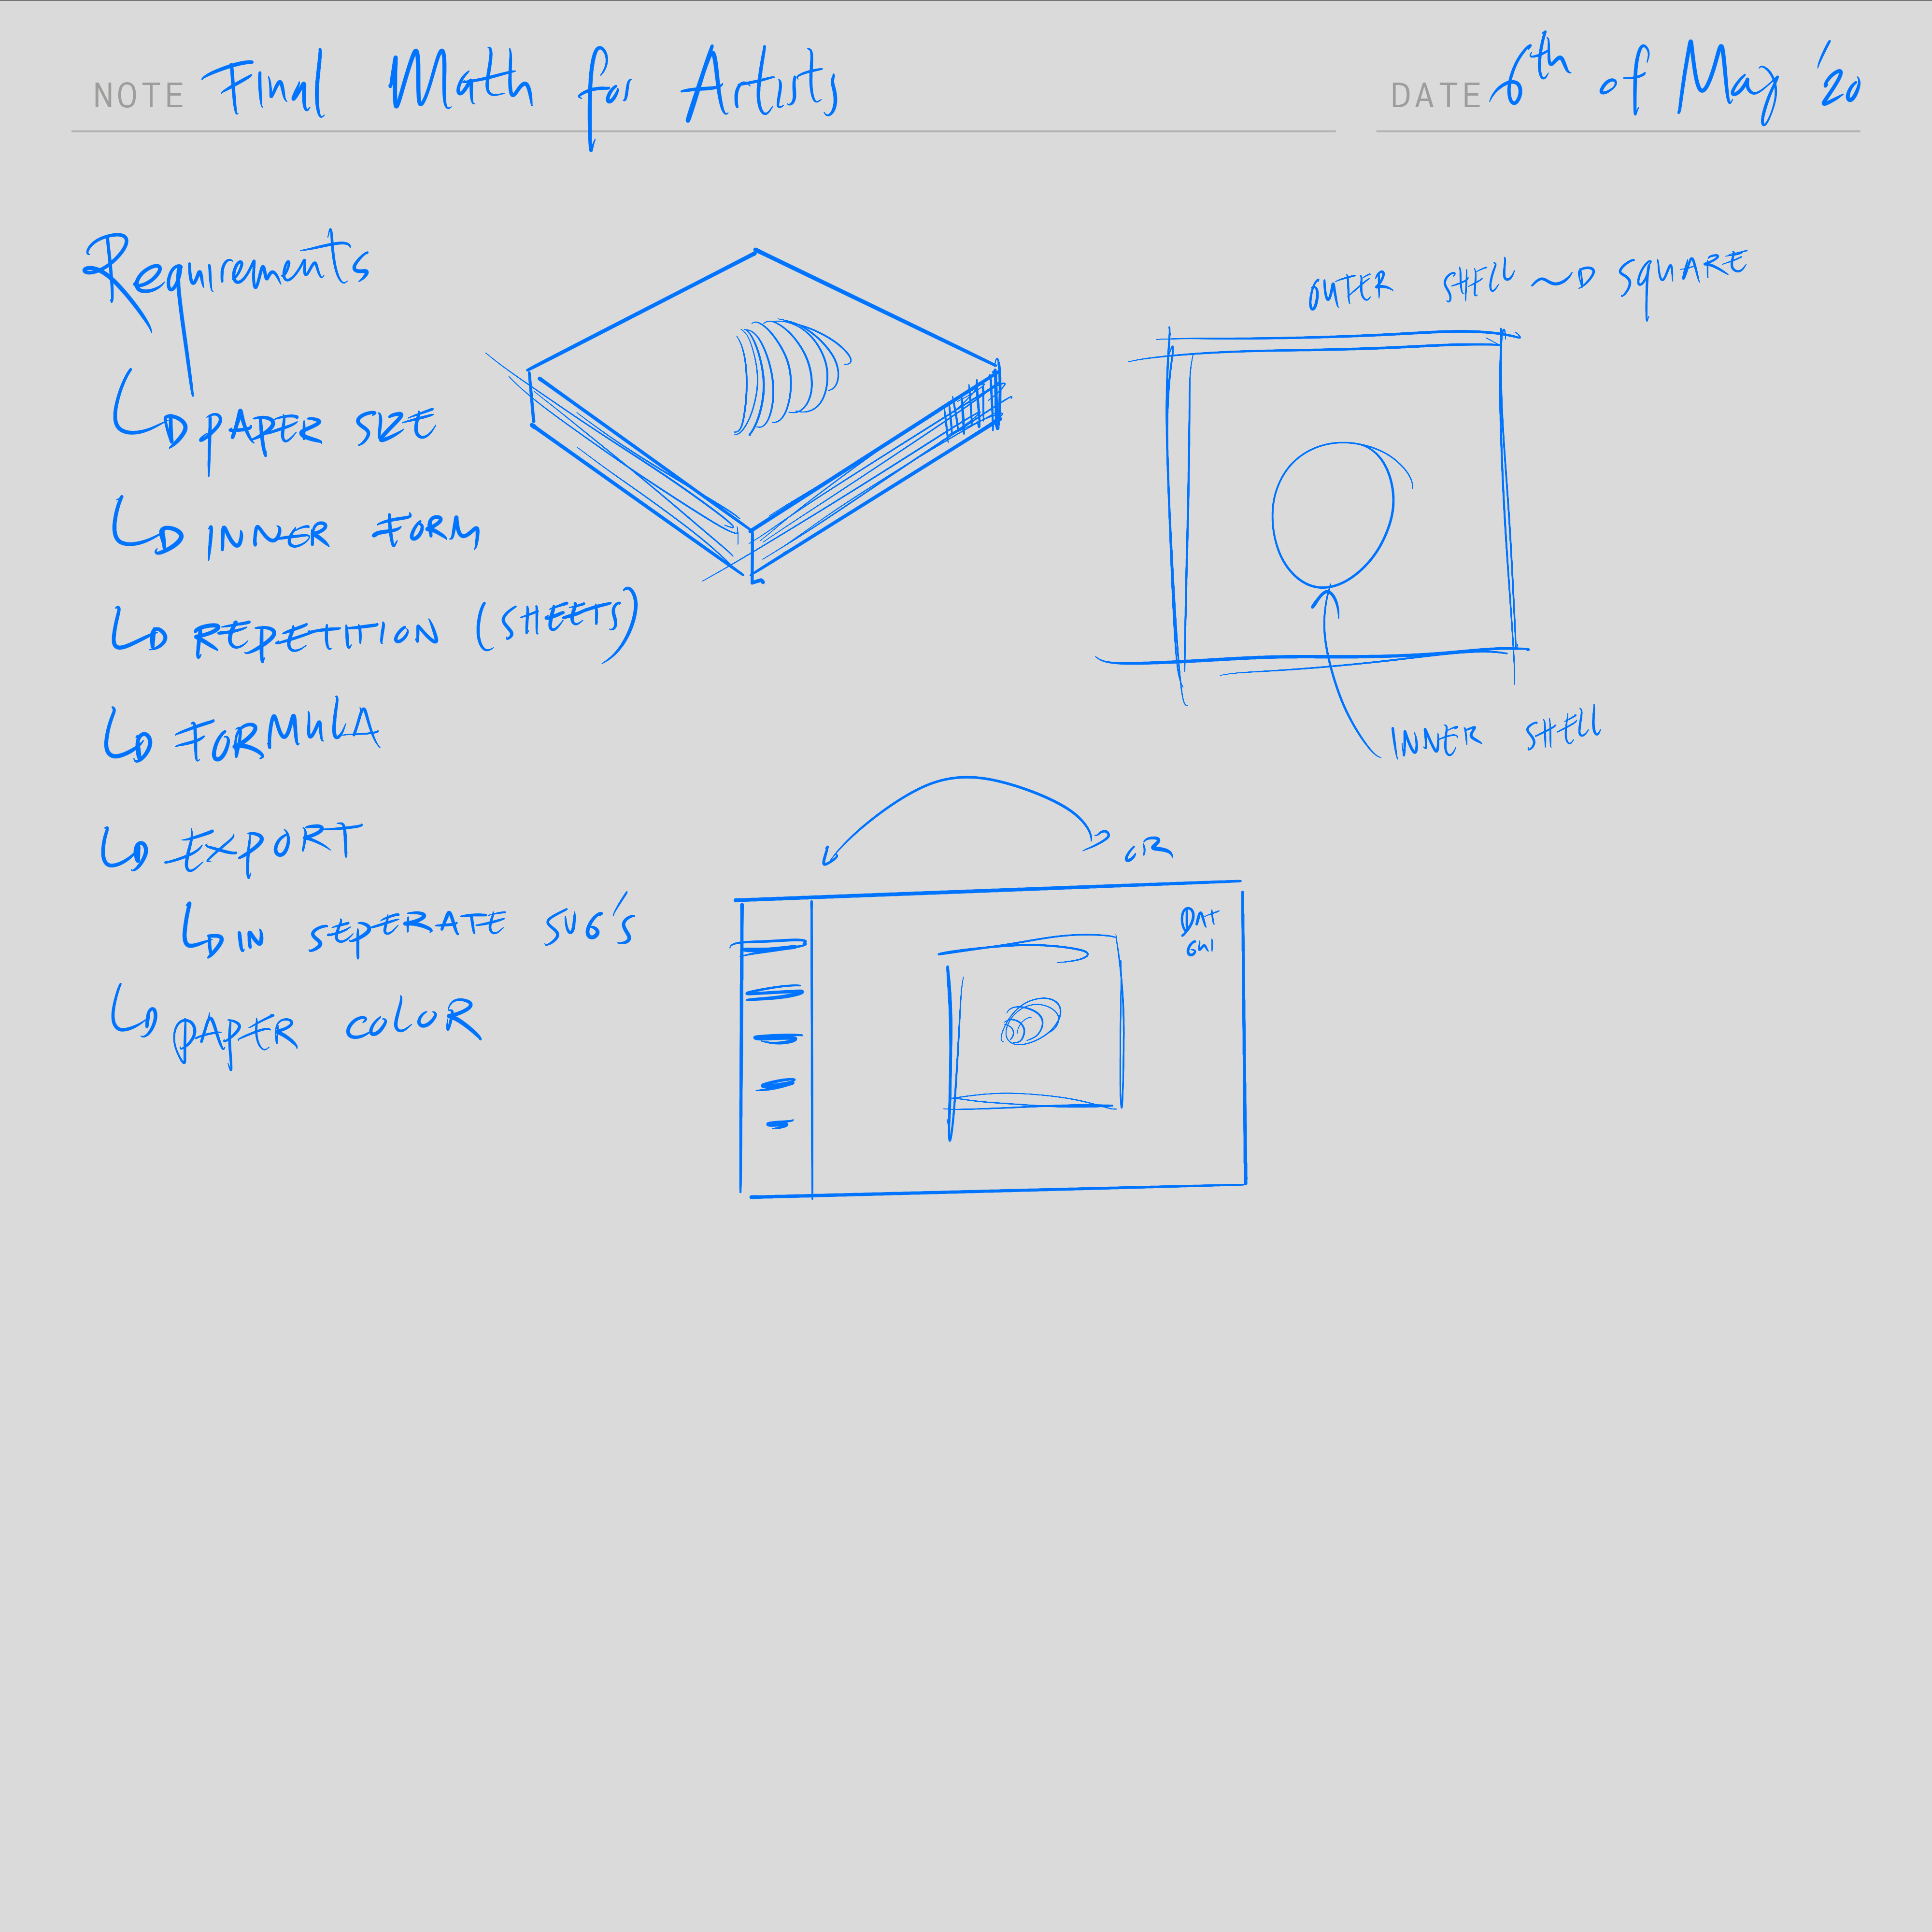 NOTE Final Math for Artists
DATE 6th of May '20
Requirements
PAPER SIZE
INNER FORM
REPETITION (SHEETS)
FORMULA
EXPORT
IN SEPERATE SVG'S
PAPER COLOR
OUTER SHELL SQUARE
INNER SHELL
OR
DAT
GUI